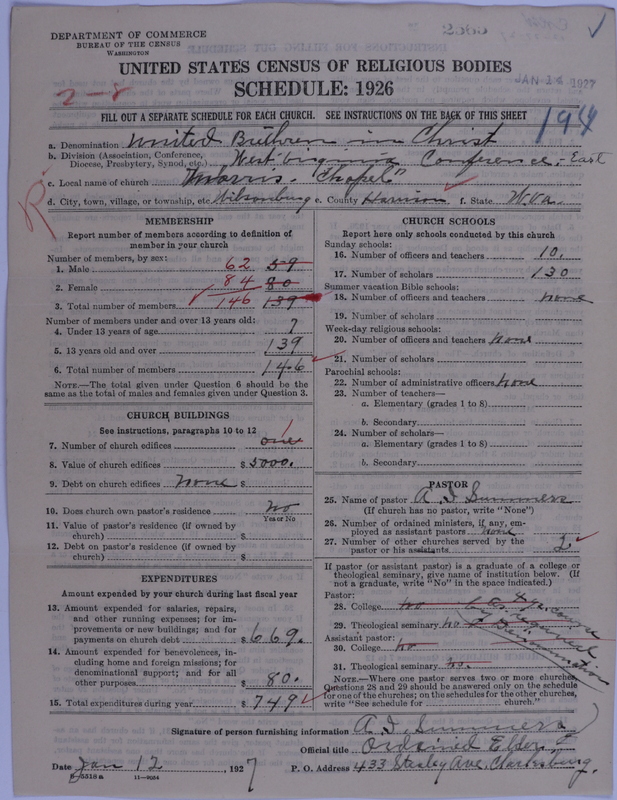 DEPARTMENT OF COMMERCE
BUREAU OF THE CENSUS
WASHINGTON
UNITED STATES CENSUS OF RELIGIOUS BODIES
SCHEDULE: 1926
JAN 14 1927
2-8
FILL OUT A SEPARATE SCHEDULE FOR EACH CHURCH. SEE INSTRUCTIONS ON THE BACK OF THIS SHEET
194
a. Denomination United Brethren in Christ
b. Division (Association, Conference, Diocese, Presbytery, Synod, etc.) West Virginia Conference - East
c. Local name of church Morris "Chapel"
d. City, town, village, or township, etc Wilsonburg e. County Harrison f. State W.Va.
MEMBERSHIP
Report number of members according to definition of
member in your church
Number of members, by sex:
1. Male 62 59
2. Female 84 80
3. Total number of members 146 139
Number of members under and over 13 years old:
4. Under 13 years of age 7
5. 13 years old and over 139
6. Total number of members 146
NOTE.—The total given under Question 6 should be
same as the total of males and females given under Question 3.
CHURCH BUILDINGS
See instructions, paragraphs 10 to 12
7. Number of church edifices one 1
8. Value of church edifices $ 5000.
9. Debt on church edifices none $
10. Does church own pastor's residence No
Yes or No
11. Value of pastor's residence (if owned by
church) $
12. Debt on pastor's residence (if owned by
church) $
EXPENDITURES
Amount expended by your church during last fiscal year
13. Amount expended for salaries, repairs,
and other running expenses; for im-
provements or new buildings; and for
payments on church debt $ 669.
14. Amount expended for benevolences, in-
cluding home and foreign missions; for
denominational support; and for all
other purposes $ 80.
15. Total expenditures during year $ 749
CHURCH SCHOOLS
Report here only schools conducted by this church
Sunday schools:
16. Number of officers and teachers 10,
17. Number of scholars 130
Summer vacation Bible schools:
18. Number of officers and teachers none
19. Number of scholars
Week-day religious schools:
20. Number of officers and teachers none
21. Number of scholars
Parochial schools:
22. Number of administrative officers none
23. Number of teachers—
a. Elementary (grades 1 to 8)
b. Secondary
24. Number of scholars—
a. Elementary (grades 1 to 8)
b. Secondary
PASTOR
25. Name of pastor A I Summers
(If church has no pastor, write "None")
26. Number of ordained ministers, if any, em-
ployed as assistant pastors none
27. Number of other churches served by the
pastor or his assistants
If pastor (or assistant pastor) is a graduate of a college or
theological seminary, give name of institution below. (If
not a graduate, write "No" in the space indicated.)
Pastor:
28. College no
29. Theological seminary no
4 yr. course
required
by Denomination
Assistant pastor:
30. College no
31. Theological seminary no.
NOTE.—Where one pastor serves two or more churches,
Questions 28 and 29 should be answered only on the schedule
for one of the churches; on the schedules for the other churches,
write "See schedule for church."
Signature of person furnishing information A I Summers
Official title Ordained Elder
Date Jan 12, 1927 P. O. Address 433 Stealey Ave, Clarksburg.
8-5518a 11-9054